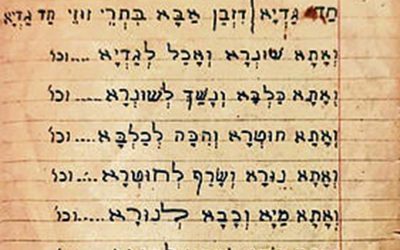 חַד גַּדְיָא | דִזְבַן אַבָּא בִּתְרֵי זוּזֵי חַד גַדְיָא
וְאָתָא שׁוּנְרָא וְאָכַל לְגַדְיָא....וכו
וְאָתָא כַּלְבָּא וְנָשַׁךְ לְשׁוּנְרָא....וכו
וְאָתָא חוּטְרָא וְהִכָּה לְכַלְבָּא....וכו
וְאָתָא נוּרָא וְשָׂרַף לְחוּטְרָא....וכו
וְאָתָא מַיָא וְכָבָא לְנוּרָא....וכו